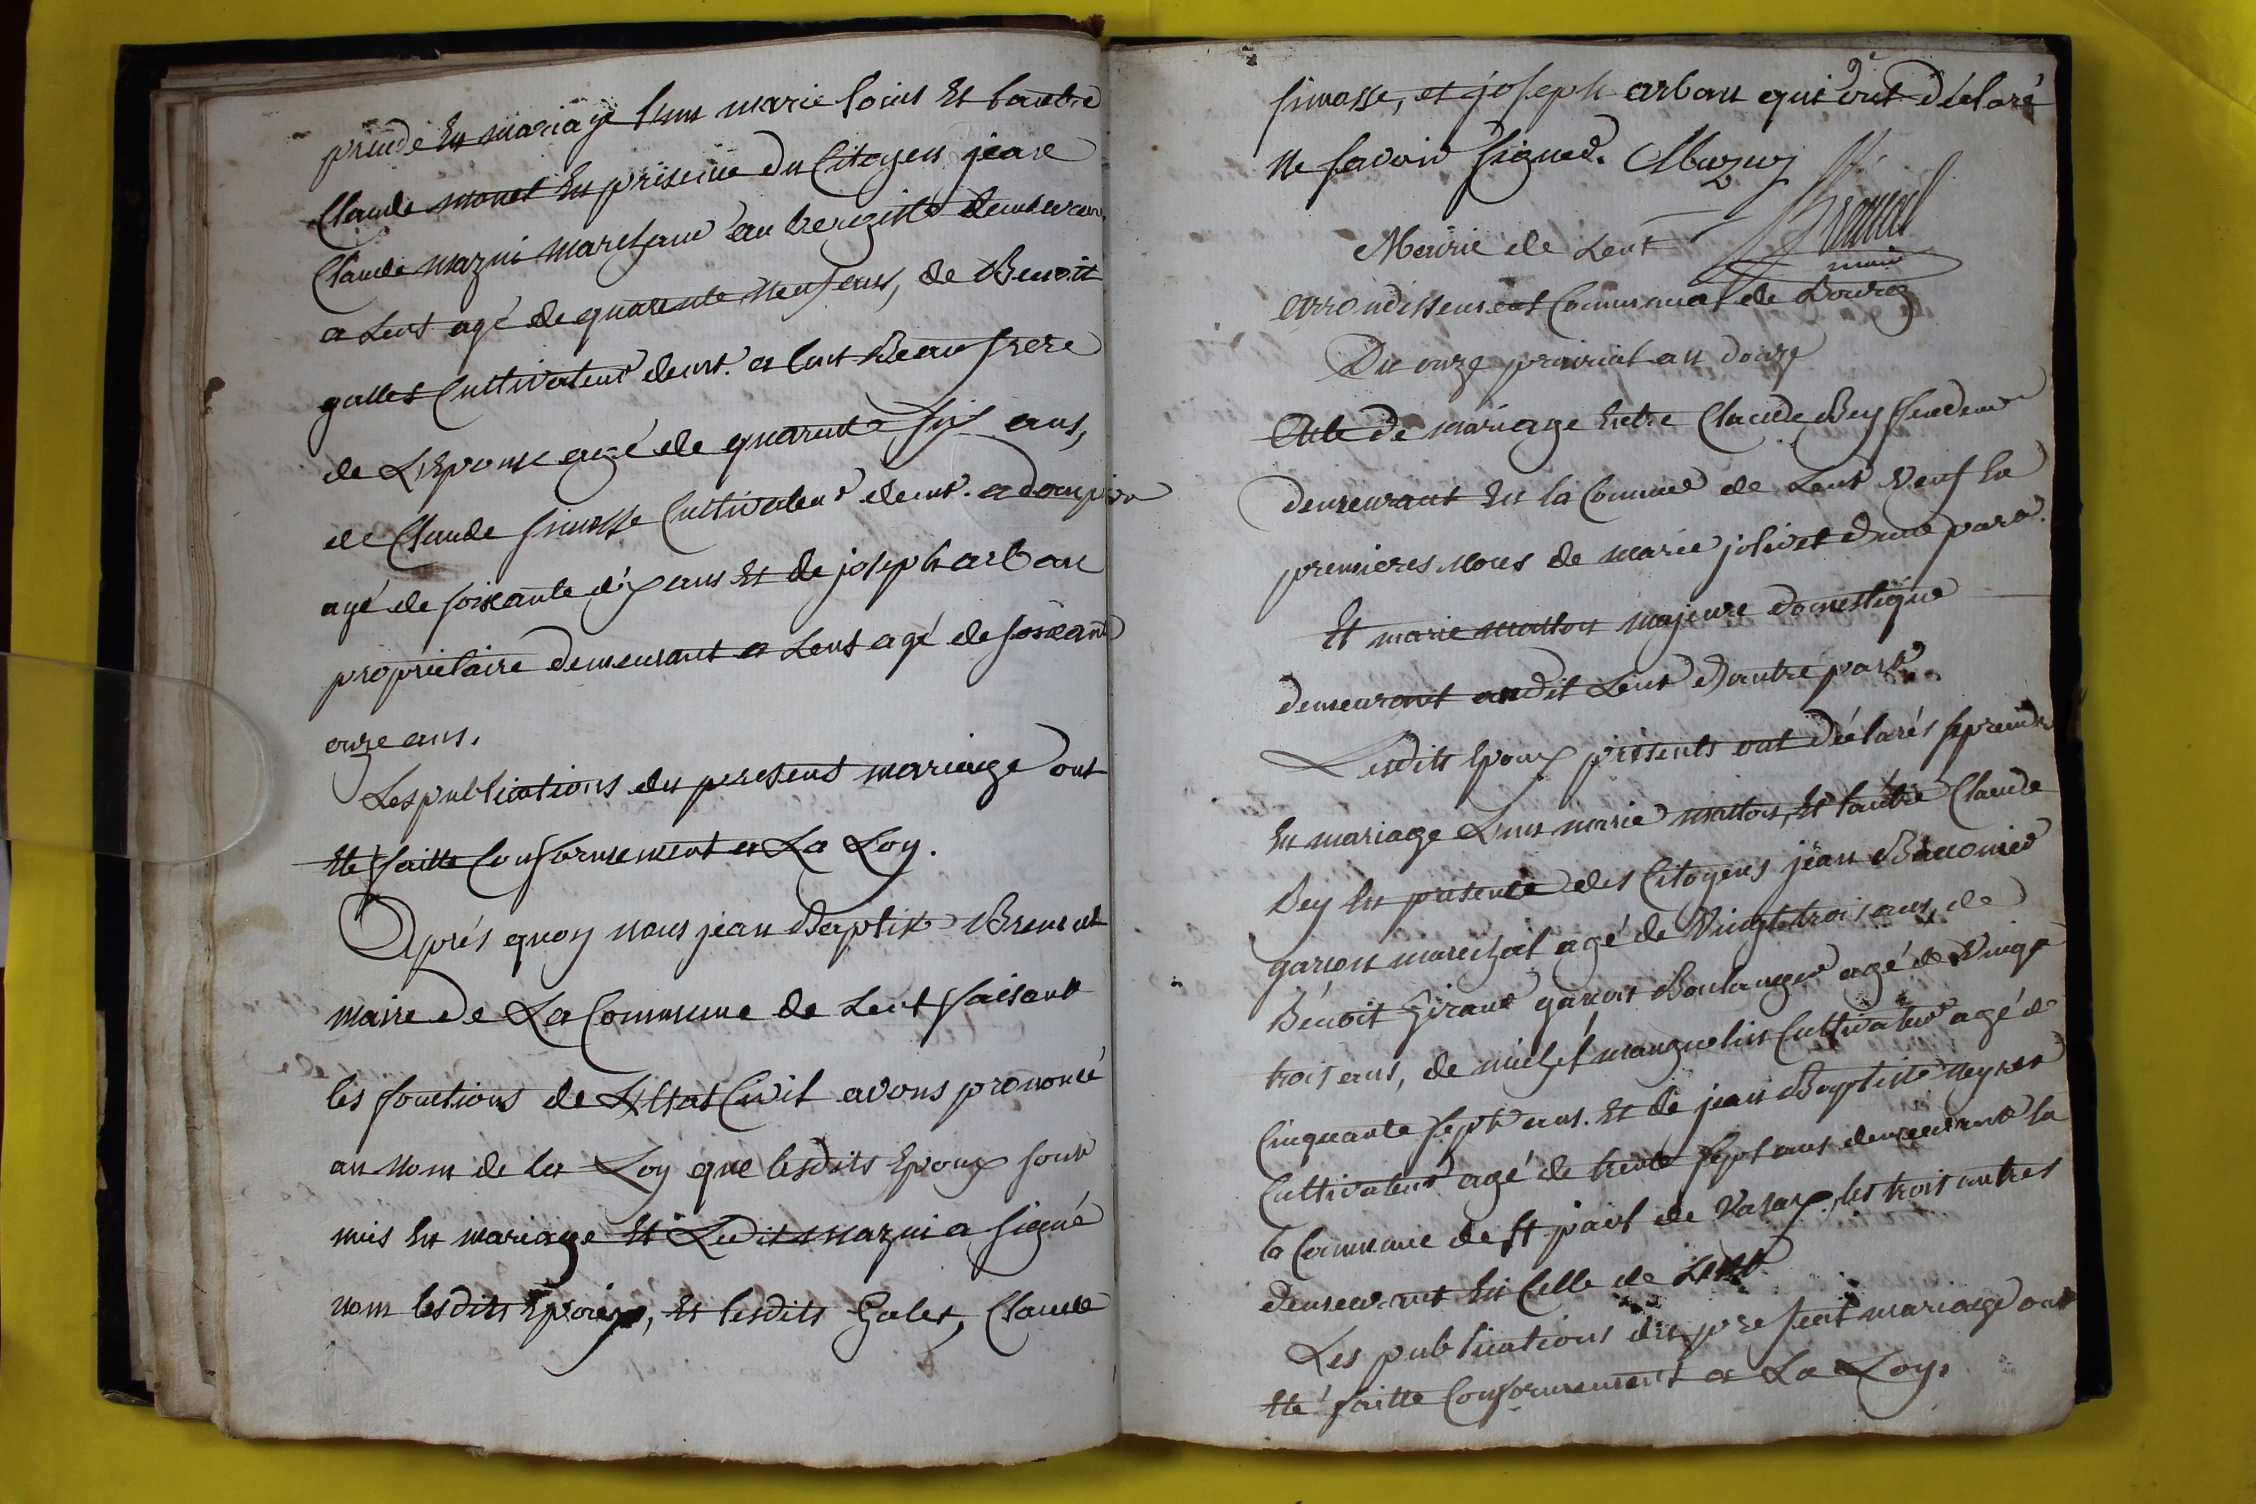 prende En mariage l'un marie loüis Et l'autre
Claude monet En présence du Citoyen jean
Claude mazui marchand aubergiste demeurant
a Lent agé de quarante neuf ans, de Benoit
galles Cultivateur demt. a Lent Beau frere
de L'Epouse agé de quarente six ans,
de Claude simosse Cultivateur demt. a dompierre
agé de soixante dix ans Et de joseph arban
proprietaire demeurant a Lent agé de soixante
onze ans.
Les publications du present mariage ont
Eté faitte Conformement a La Loy.
Après quoy nous jean Baptiste Brenat
maire de La Commune de Lent faisant
les fonctions de L'Etat Civil avons prononcé
au nom de la Loy que lesdits Epoux sont
unis En mariage Et Ledit mazui a signé
non lesdits Epoux, Et lesdits Gales, Claude
simosse, et joseph arban qui ont déclaré
Ne savoir signer. Mazuy
Mairie de Lent
maire
arrondissement Communal de Bourg
Du onze prairial an douze
Acte de mariage Entre Claude Bey
demeurant En la Commune de Lent Veuf En
premieres noces de marie jolivet d'une part.
Et marie matton majeure domestique
demeurant audit Lent d'autre part
Lesdits Epoux présents ont déclarés se prendre
En mariage L'un marie matton, Et l'autre Claude
Bey En présence des Citoyens jean
garçon marechal agé de Vingt trois ans, de
Bénoit Giraud garçon Boulanger agé de Vingt
trois ans, de michel manguelin Cultivateur agé de
Cinquante sept ans. Et de jean Baptiste neyret
Cultivateur agé de trente sept ans demeurant En
la Commune de St paul de Varax, les trois autres
demeurant En Celle de Lent
Les publications du present mariage ont
Eté faitte Conformement a La Loy.